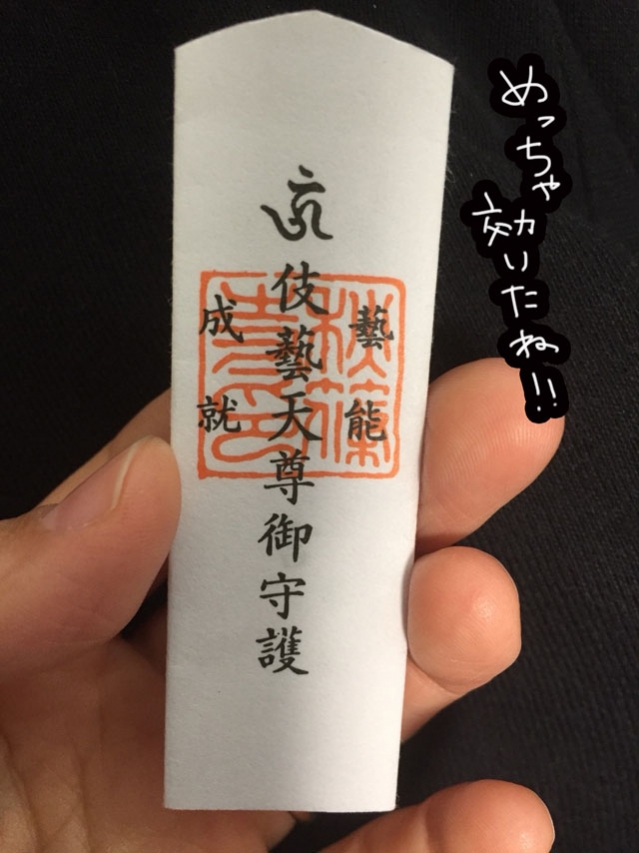 藝能
伎藝天尊御守護
成就
秋篠寺印
めっちゃ
効いたね!!